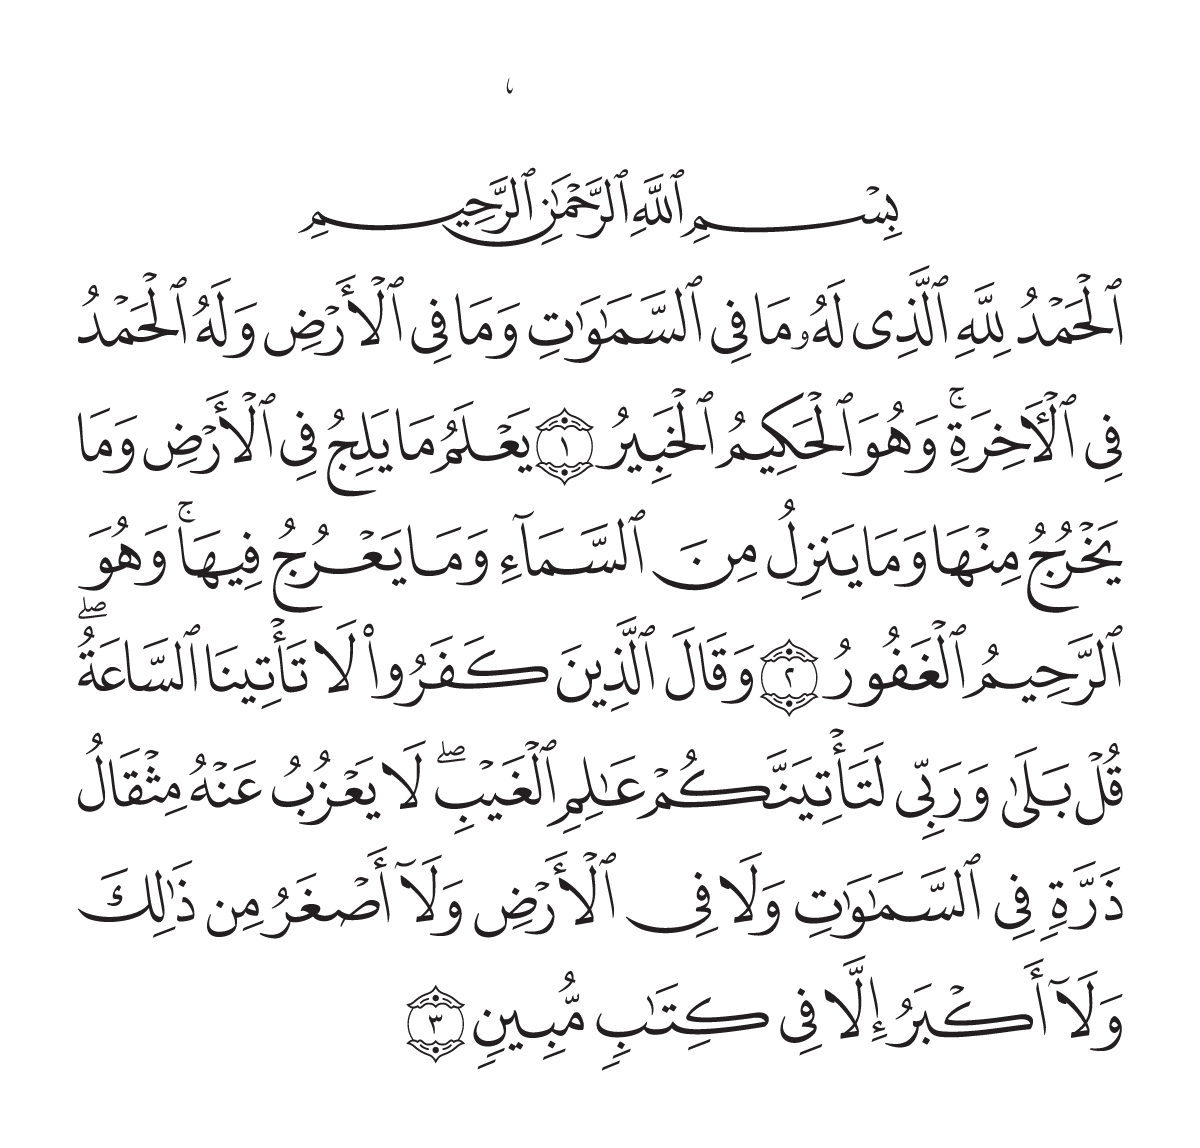 بِسْمِ ٱللَّهِ ٱلرَّحْمَٰنِ ٱلرَّحِيمِ
ٱلْحَمْدُ لِلَّهِ ٱلَّذِى لَهُۥ مَا فِى ٱلسَّمَٰوَٰتِ وَمَا فِى ٱلْأَرْضِ وَلَهُ ٱلْحَمْدُ
فِى ٱلْـَٔاخِرَةِ ۚ وَهُوَ ٱلْحَكِيمُ ٱلْخَبِيرُ ١ يَعْلَمُ مَا يَلِجُ فِى ٱلْأَرْضِ وَمَا
يَخْرُجُ مِنْهَا وَمَا يَنزِلُ مِنَ ٱلسَّمَآءِ وَمَا يَعْرُجُ فِيهَا ۚ وَهُوَ
ٱلرَّحِيمُ ٱلْغَفُورُ ٢ وَقَالَ ٱلَّذِينَ كَفَرُوا۟ لَا تَأْتِينَا ٱلسَّاعَةُ ۖ
قُلْ بَلَىٰ وَرَبِّى لَتَأْتِيَنَّكُمْ عَٰلِمِ ٱلْغَيْبِ ۖ لَا يَعْزُبُ عَنْهُ مِثْقَالُ
ذَرَّةٍ فِى ٱلسَّمَٰوَٰتِ وَلَا فِى ٱلْأَرْضِ وَلَآ أَصْغَرُ مِن ذَٰلِكَ
وَلَآ أَكْبَرُ إِلَّا فِى كِتَٰبٍ مُّبِينٍ ٣